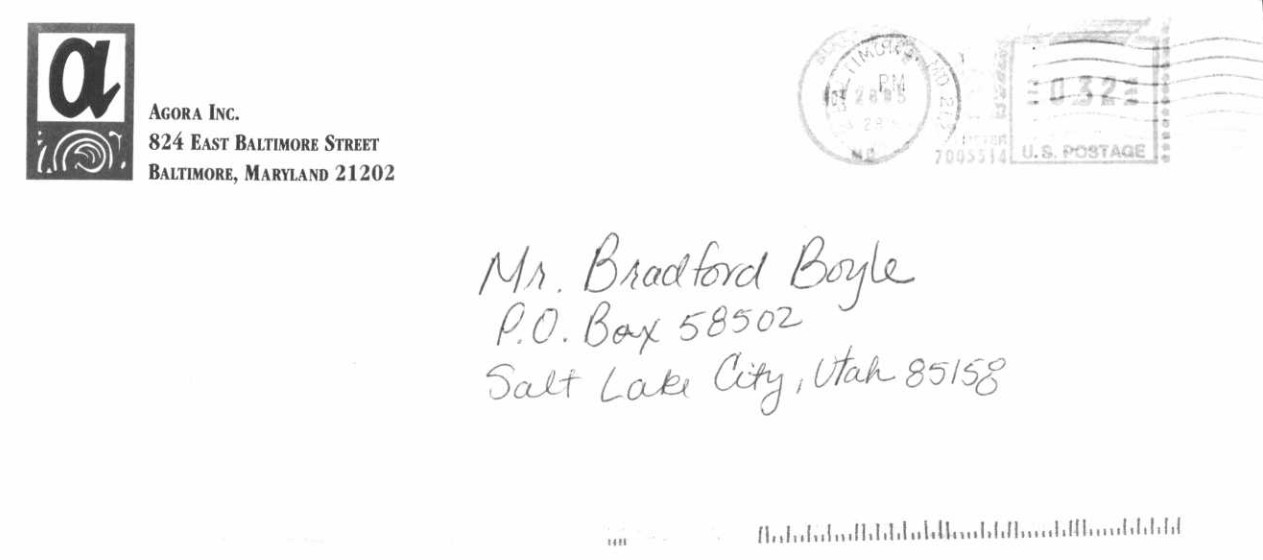 a
AGORA INC.
824 EAST BALTIMORE STREET
BALTIMORE, MARYLAND 21202
PM
MD
7005514
032
U.S. POSTAGE
Mr. Bradford Boyle
P.O. Box 58502
Salt Lake City, Utah 85158